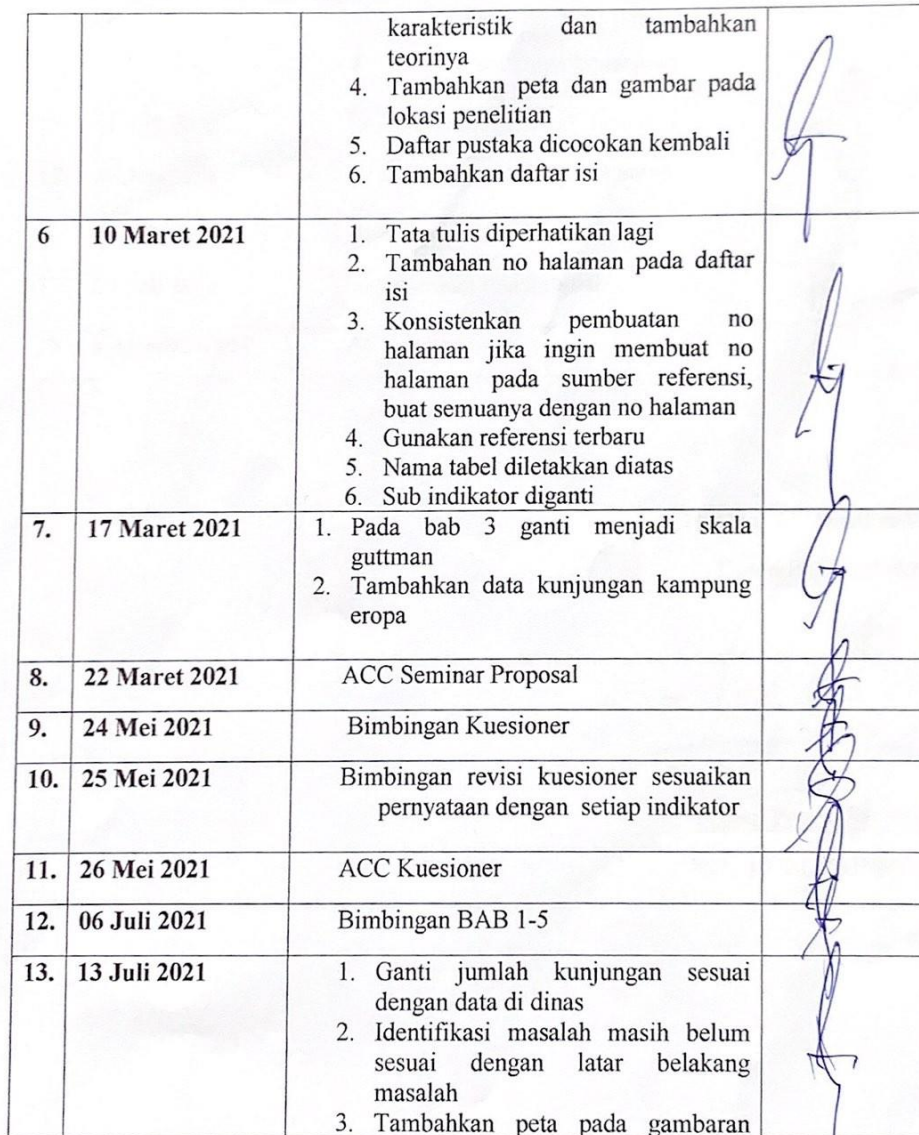 karakteristik dan tambahkan
teorinya
4. Tambahkan peta dan gambar pada
lokasi penelitian
5. Daftar pustaka dicocokan kembali
6. Tambahkan daftar isi
6 10 Maret 2021 1. Tata tulis diperhatikan lagi
2. Tambahan no halaman pada daftar
isi
3. Konsistenkan pembuatan no
halaman jika ingin membuat no
halaman pada sumber referensi,
buat semuanya dengan no halaman
4. Gunakan referensi terbaru
5. Nama tabel diletakkan diatas
6. Sub indikator diganti
7. 17 Maret 2021 1. Pada bab 3 ganti menjadi skala
guttman
2. Tambahkan data kunjungan kampung
eropa
8. 22 Maret 2021 ACC Seminar Proposal
9. 24 Mei 2021 Bimbingan Kuesioner
10. 25 Mei 2021 Bimbingan revisi kuesioner sesuaikan
pernyataan dengan setiap indikator
11. 26 Mei 2021 ACC Kuesioner
12. 06 Juli 2021 Bimbingan BAB 1-5
13. 13 Juli 2021 1. Ganti jumlah kunjungan sesuai
dengan data di dinas
2. Identifikasi masalah masih belum
sesuai dengan latar belakang
masalah
3. Tambahkan peta pada gambaran